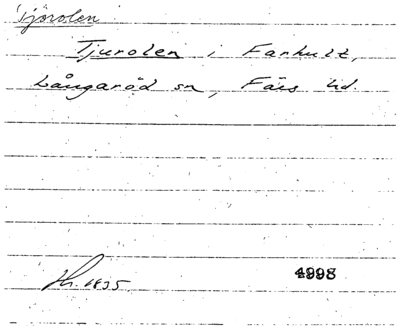 Tjörolen
Tjurolen i Farhult,
Långaröd sn, Färs hd.
1835
4998